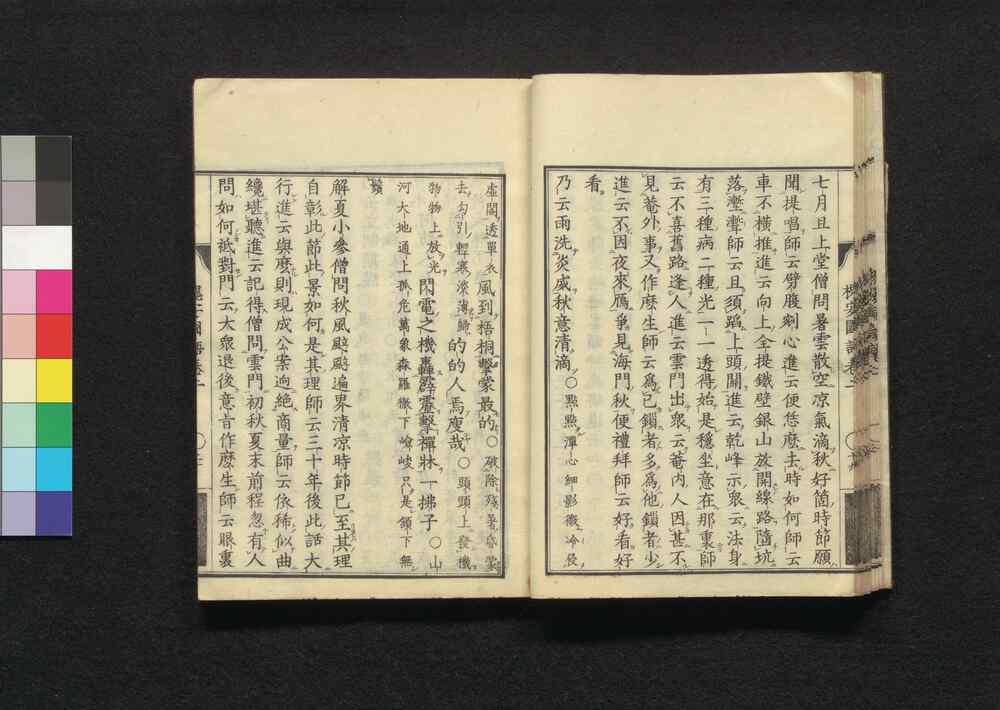 七月旦上堂僧問暑雲散空凉氣滴秋好箇時節願
聞提唱師云劈腹剜心進云便恁麽去時如何師云
車不橫推進云向上全提鐵壁銀山放開線路隨坑
落壍聻師云且須蹈上頭關進云乾峰示衆云法身
有三種病二種光一一透得始是穩坐意在那裏師
云不喜舊路逢人進云雲門出衆云菴內人因甚不
見菴外事又作麽生師云爲已鎖者多爲他鎖者少
進云不因夜來鴈爭見海門秋便禮拜師云好看好
看
乃云雨洗炎威秋意清滴○點點潭心細影微冷侵
虛閣透單衣風到梧桐擊蒙最的○破除殘暑昏蒙
去勾引輕寒滲薄歸的的人焉廋哉○頭頭上發機
物物上放光閃電之機轟霹靂擊禪牀一拂子○山
河大地通上孤危萬象森羅徹下嶮峻只是領下無
鬚
解夏小參僧問秋風颼颼遍界清凉時節已至其理
自彰此節此景如何是其理師云三十年後此話大
行進云與麽則現成公案逈絶商量師云依稀似曲
纔堪聽進云記得僧問雲門初秋夏末前程忽有人
問如何祗對門云大衆退後意旨作麽生師云眼裏